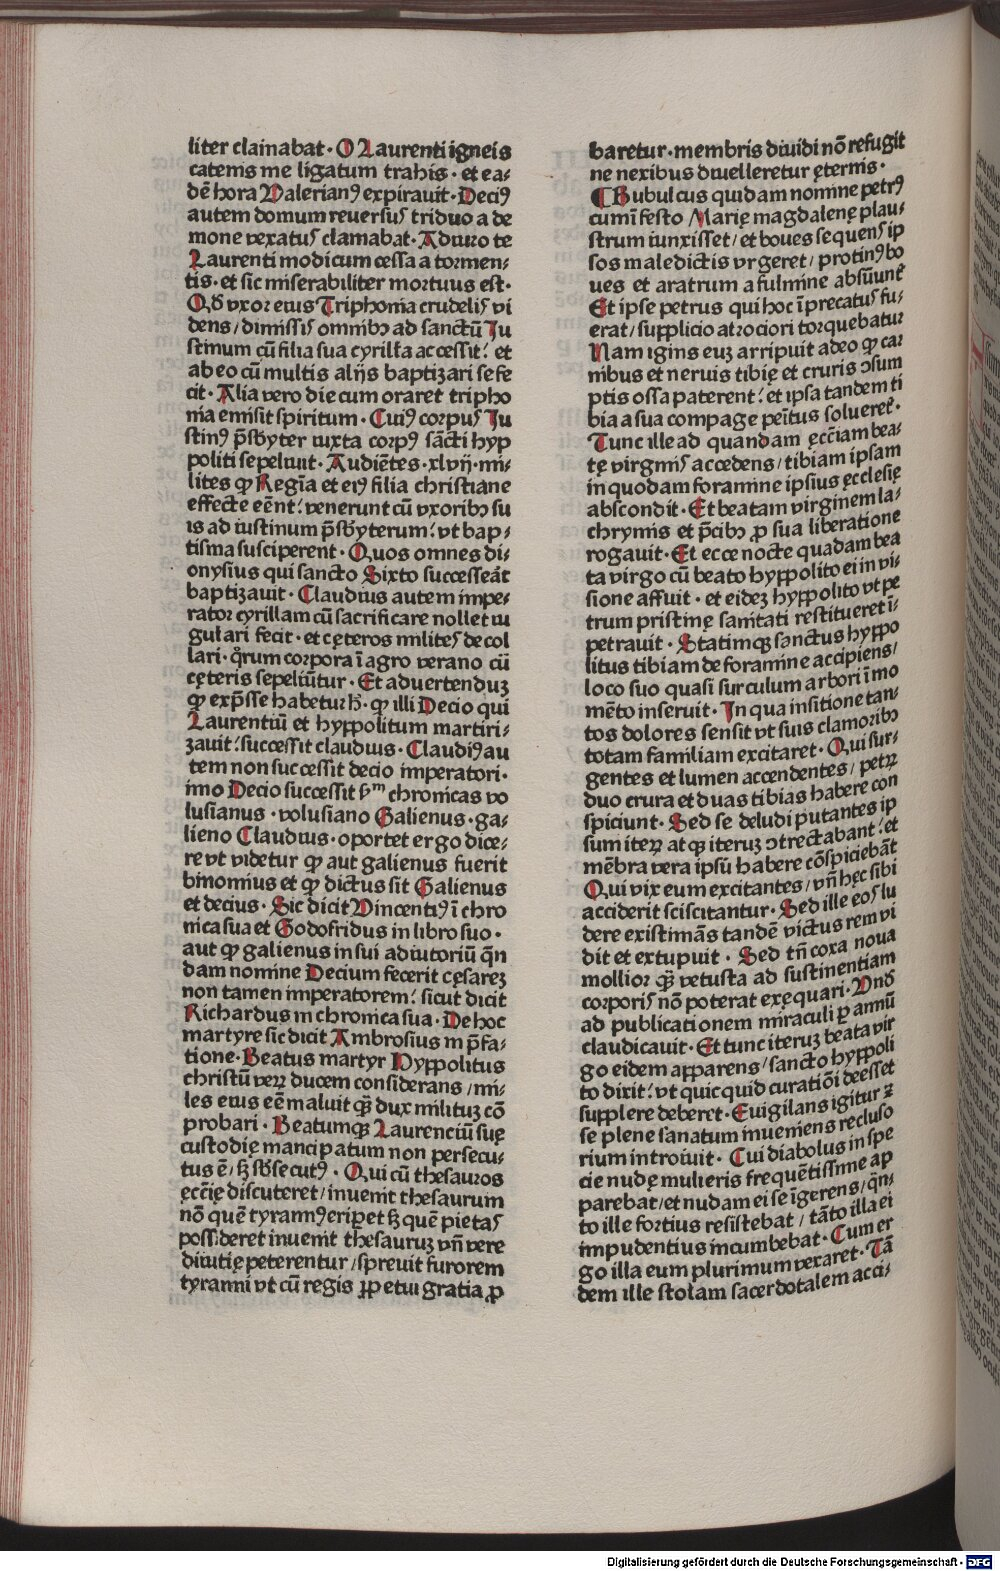 liter clamabat · O Laurenti igneis
catenis me ligatum trahis · et ea-
dē hora Valerianꝰ expirauit · Deciꝰ
autem domum reuersus triduo a de
mone vexatus clamabat · Adiuro te
Laurenti modicum cessa a tormen-
tis · et sic miserabiliter mortuus est ·
Qd̄ vxor eius Triphonia crudelis vi
dens / dimissis omnibꝫ ad sanctū Iu
stinum cū filia sua cyrilla accessit : et
ab eo cū multis alijs baptizari se fe
cit · Alia vero die cum oraret tripho
nia emisit spiritum · Cuiꝰ corpus Iu
stinꝰ p̄sbyter iuxta corpꝰ sācti hyp
politi sepeluit · Audiētes · xlvij · mi-
lites ꝙ Regīa et eiꝰ filia christiane
effecte eēnt : venerunt cū vxoribꝫ su
is ad iustinum p̄sbyterum : vt bap-
tisma susciperent · Quos omnes di-
onysius qui sancto Sixto successeāt
baptizauit · Claudius autem impe-
rator cyrillam cū sacrificare nollet iu
gulari fecit · et cęteros milites decol
lari · qͦrum corpora ī agro verano cū
cęteris sepeliūtur · Et aduertenduꝫ
ꝙ exp̄sse habetur h̄ · ꝙ illi Decio qui
Laurentiū et hyppolitum martiri-
zauit : successit claudius · Claudiꝰ au
tem non successit decio imperatori ·
imo Decio successit ẜm chronicas vo
lusianus · volusiano Galienus · ga-
lieno Claudius · oportet ergo dice-
re vt videtur ꝙ aut galienus fuerit
binomius et ꝙ dictus sit Galienus
et decius · Sic dicit Vincentiꝰ ī chro
nica sua et Godofridus in libro suo ·
aut ꝙ galienus in sui adiutoriū qn̄
dam nomine Decium fecerit cęsareꝫ
non tamen imperatorem : sicut dicit
Richardus in chronica sua · De hoc
martyre sic dicit Ambrosius in p̄fa-
tione · Beatus martyr Hyppolitus
christū veꝝ ducem considerans / mi-
les eius eē maluit qͣ̄ dux milituꝫ cō
probari · Beatumqꝫ Laurenciū suę
custodię mancipatum non persecu-
tus ē / sꝫ sb̄secutꝰ · Qui cū thesauros
ęccīę discuteret / inuenit thesaurum
nō quē tyrannꝰ eriꝑet sꝫ quē pietas
possideret inuenit thesauruꝫ vn̄ vere
diuitię peterentur / spreuit furorem
tyranni vt cū regis ꝑpetui gratia ꝓ
baretur · membris diuidi nō refugit
ne nexibus diuelleretur ęternis ·
¶ Bubulcus quidam nomine petrꝰ
cum ī festo Marię magdalenę plau-
strum iunxisset / et boues sequens ip
sos maledictis vrgeret / protinꝰ bo
ues et aratrum a fulmine absūunt̄
Et ipse petrus qui hoc īprecatus fu-
erat / supplicio atrociori torquebatur
Nam ignis euꝫ arripuit adeo ꝙ car
nibus et neruis tibię et cruris ↄsum
ptis ossa paterent : et ipsa tandem ti
bia a sua compage pēitus solueret̄ ·
Tunc ille ad quandam ęcc̄iam bea-
tę virginis accedens / tibiam ipsam
in quodam foramine ipsius ęcclesię
abscondit · Et beatam virginem la-
chrymis et p̄cibꝫ ꝓ sua liberatione
rogauit · Et ecce nocte quadam bea
ta virgo cū beato hyppolito ei in vi-
sione affuit · et eideꝫ hyppolito vt pe
trum pristinę sanitati restitueret ī-
petrauit · Statimqꝫ sanctus hyppo
litus tibiam de foramine accipiens /
loco suo quasi surculum arbori ī mo
mēto inseruit · In qua insitione tan-
tos dolores sensit vt suis clamoribꝫ
totam familiam excitaret · Qui sur-
gentes et lumen accendentes / petꝝ
duo crura et duas tibias habere con
spiciunt · Sed se deludi putantes ip
sum iteꝝ atqꝫ iteruꝫ ↄtrectabant : et
mēbra vera ipsū habere cōspiciebāt
Qui vix eum excitantes / vn̄ hęc sibi
acciderit sciscitantur · Sed ille eos lu
dere existimās tandē victus rem vi
dit et extupuit · Sed tn̄ coxa noua
mollior qͣ̄ vetusta ad sustinentiam
corporis nō poterat exęquari · Vnd̄
ad publicationem miraculi ꝑ annū
claudicauit · Et tunc iteruꝫ beata vir
go eidem apparens / sancto hyppoli
to dixit : vt quicquid curatiōi deesset
supplere deberet · Euigilans igitur ꝛ
se plene sanatum inueniens recluso
rium introiuit · Cui diabolus in spe
cie nudę mulieris frequētissime ap
parebat / et nudam ei se īgerens / qn̄-
to ille fortius resistebat / tāto illa ei
impudentius incumbebat · Cum er
go illa eum plurimum vexaret · Tā
dem ille stolam sacerdotalem acci-
Digitalisierung gefördert durch die Deutsche Forschungsgemeinschaft · DFG